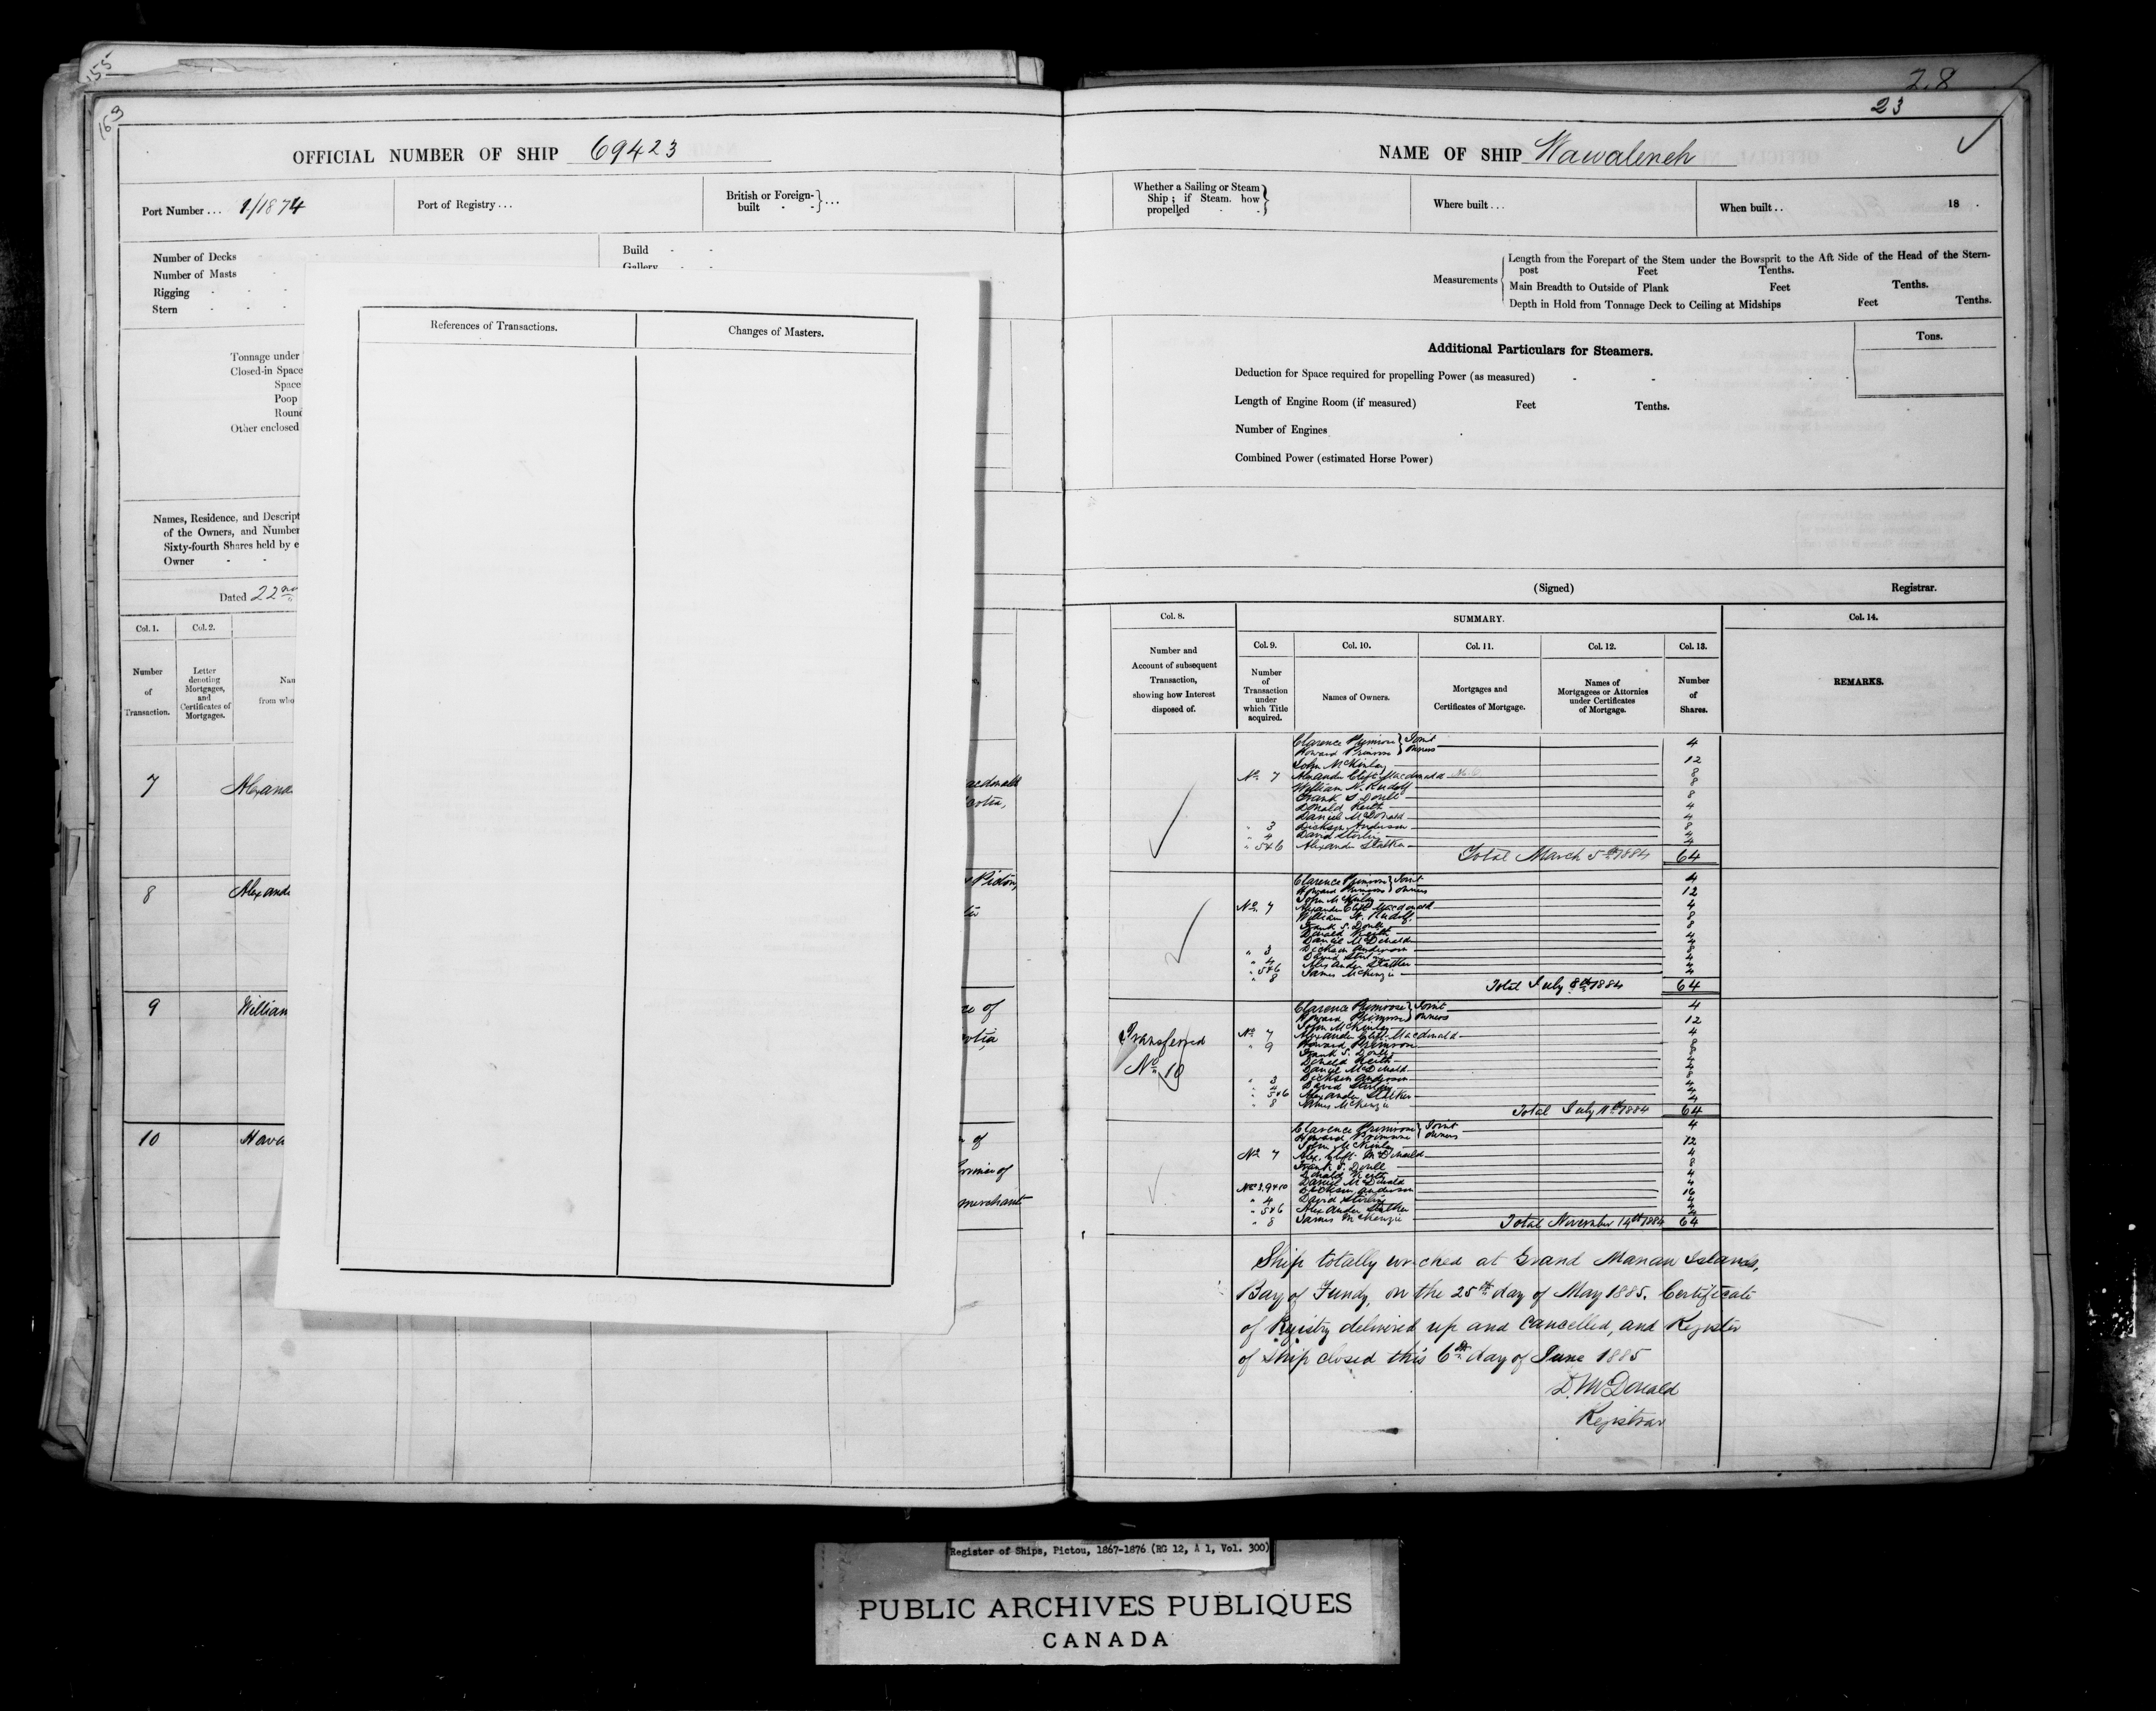 155
163
OFFICIAL NUMBER OF SHIP 69423
Port Number... 1/1874
Port of Registry...
British or Foreign-built - - } ...
Number of Decks
Number of Masts -
Rigging - - -
Stern - - -
Build - -
Gallery - -
Tonnage under
Closed-in Space
Space
Poop
Round
Other enclosed
Names, Residence, and Descript
of the Owners, and Number
Sixty-fourth Shares held by e
Owner - -
Dated 22nd
Col. 1.
Col. 2.
Number
of
Transaction.
Letter
denoting
Mortgages,
and
Certificates of
Mortgages.
Nam
from who
7 Alexand
acdonald
cotia,
8 Alexande
Pictou,
9 William
of
otia,
10 Howa
of
merchant
References of Transactions.
Changes of Masters.
28
23
NAME OF SHIP Wawalench
Whether a Sailing or Steam
Ship; if Steam. how
propelled - -
Where built...
When built.. 18 .
Measurements
Length from the Forepart of the Stem under the Bowsprit to the Aft Side of the Head of the Stern-
post Feet Tenths.
Main Breadth to Outside of Plank Feet Tenths.
Depth in Hold from Tonnage Deck to Ceiling at Midships Feet Tenths.
Additional Particulars for Steamers.
Tons.
Deduction for Space required for propelling Power (as measured) - - -
Length of Engine Room (if measured) Feet Tenths.
Number of Engines
Combined Power (estimated Horse Power)
(Signed) Registrar.
Col. 8.
SUMMARY.
Col. 14.
Number and
Account of subsequent
Transaction,
showing how Interest
disposed of.
Col. 9.
Number
of
Transaction
under
which Title
acquired.
Col. 10.
Names of Owners.
Col. 11.
Mortgages and
Certificates of Mortgage.
Col. 12.
Names of
Mortgagees or Attornies
under Certificates
of Mortgage.
Col. 13.
Number
of
Shares.
REMARKS.
Clarence Primrose } Joint 4
Howard Primrose } owners
John McKinlay 12
No. 7 Alexander Clift Macdonald 8
William N. Rudolf 8
Frank S. Doull 8
Donald Keith 4
Daniel McDonald 4
" 3 Dickson Anderson 8
" 4 David Stirling 4
" 5&6 Alexander Stalker 4
Total March 5th 1884 64
Clarence Primrose } Joint 4
Howard Primrose } owners
John McKinlay 12
No. 7 Alexander Clift Macdonald 4
William N. Rudolf 8
Frank S. Doull 8
Donald Keith 4
Daniel McDonald 4
" 3 Dickson Anderson 8
" 4 David Stirling 4
" 5&6 Alexander Stalker 4
" 8 James McKenzie 4
Total July 8th 1884 64
Transferred
No. 10
Clarence Primrose } Joint 4
Howard Primrose } owners
John McKinlay 12
No. 7 Alexander Clift Macdonald 4
" 9 Howard Primrose 8
Frank S. Doull 8
Donald Keith 4
Daniel McDonald 4
" 3 Dickson Anderson 8
" 4 David Stirling 4
" 5&6 Alexander Stalker 4
" 8 James McKenzie 4
Total July 11th 1884 64
Clarence Primrose } Joint 4
Howard Primrose } owners
John McKinlay 12
No. 7 Alex. Clift McDonald 4
Frank S. Doull 8
Donald Keith 4
Daniel McDonald 4
Nos 3, 9&10 Dickson Anderson 16
" 4 David Stirling 4
" 5&6 Alexander Stalker 4
" 8 James McKenzie 4
Total November 14th 1884 64
Ship totally wrecked at Grand Manan Islands,
Bay of Fundy, on the 25th day of May 1885. Certificate
of Registry delivered up and cancelled, and Register
of Ship closed this 6th day of June 1885
D. McDonald
Registrar
Register of Ships, Pictou, 1867-1876 (RG 12, A 1, Vol. 300)
PUBLIC ARCHIVES PUBLIQUES
CANADA